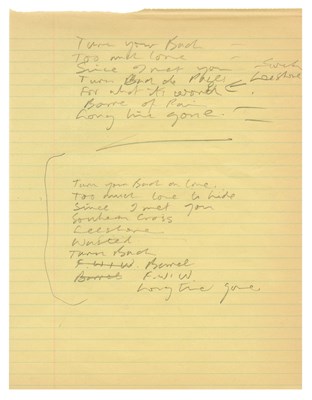 Turn your Back —
Too much Love —
Since I met you — South
Turn Back do Pages Leeshore
For what it's worth
Barrel of Pain —
Long time gone. —
Turn your Back on Love.
Too much Love to hide
Since I met you
Southern Cross
Leeshore
Wasted
Turn Back
F.W.I.W Barrel
Barrel F.W.I.W.
Long time gone.